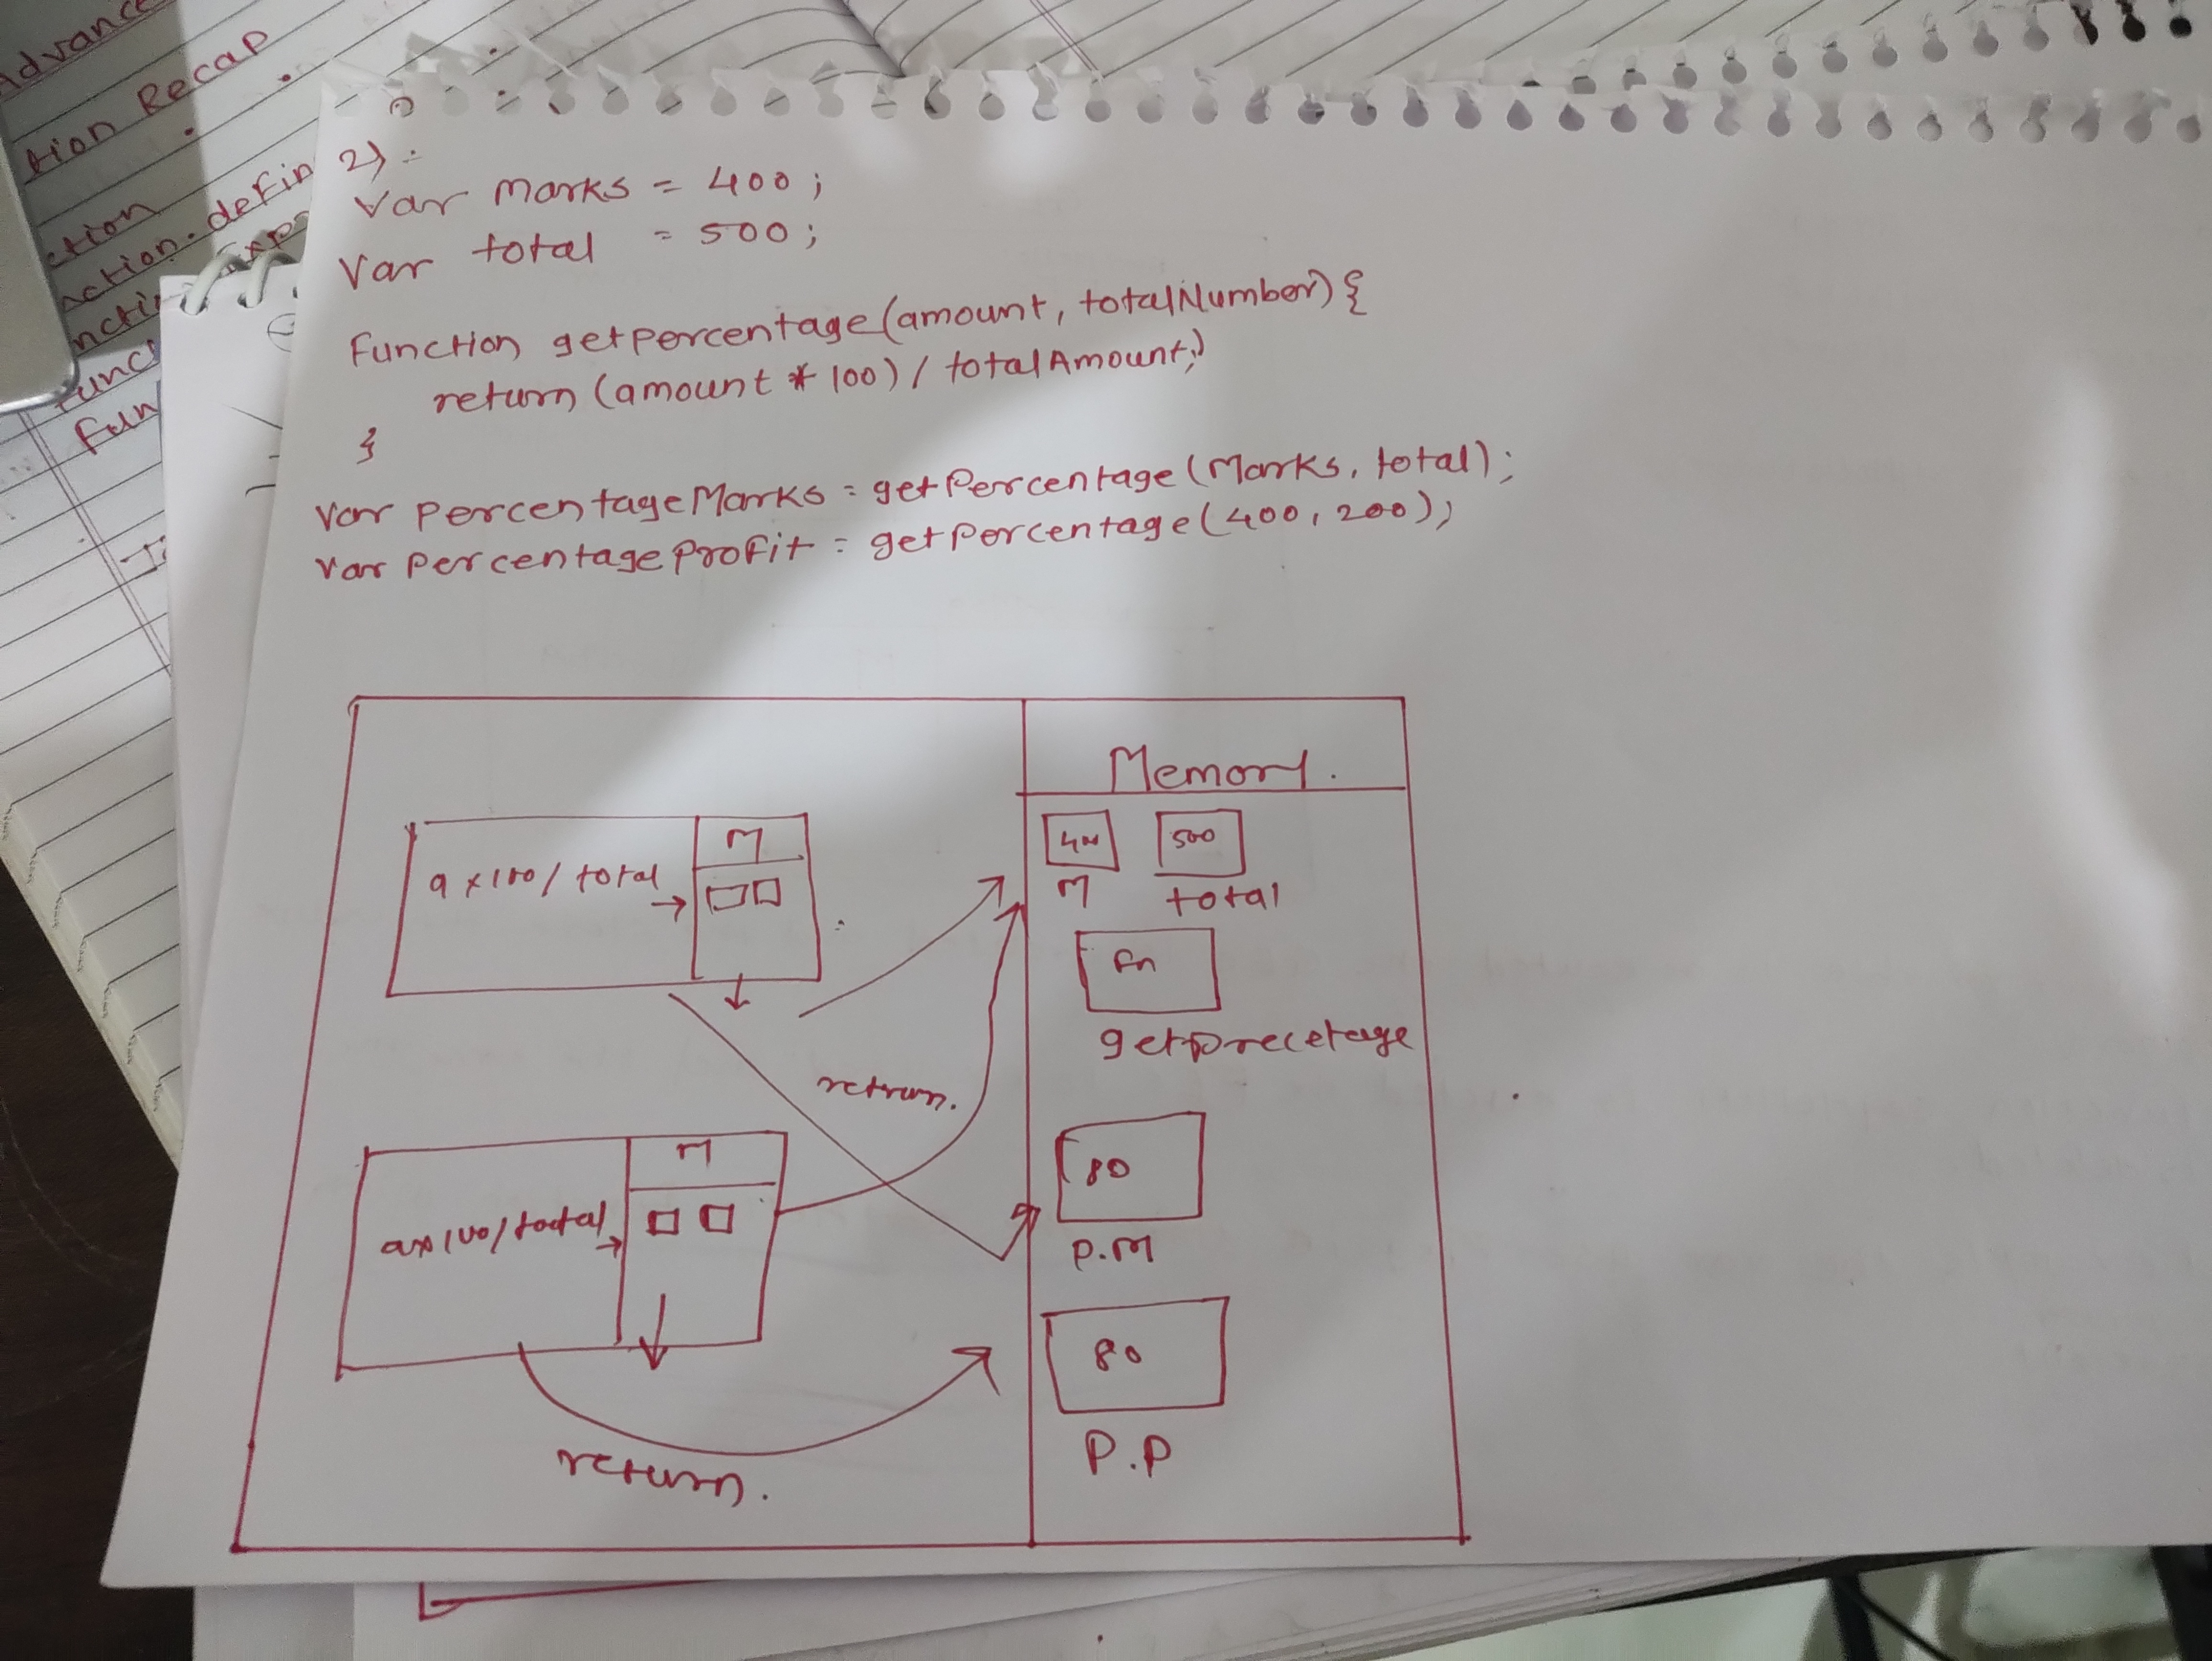 Advance
tion Recap
ction
ction.defin
Exp
nctio
func
Fun
2) :-
Var marks = 400;
Var total = 500;
Function getpercentage(amount, totalNumber){
return (amount * 100) / totalAmount;
}
Var percentageMarks = getPercentage(Marks, total);
Var percentageProfit = getPercentage(400, 200);
Memory.
400 500
M total
fn
getprecetage
M
a x 100 / total →
retrun.
80
P.M
M
ax100/total →
80
P.P
return.